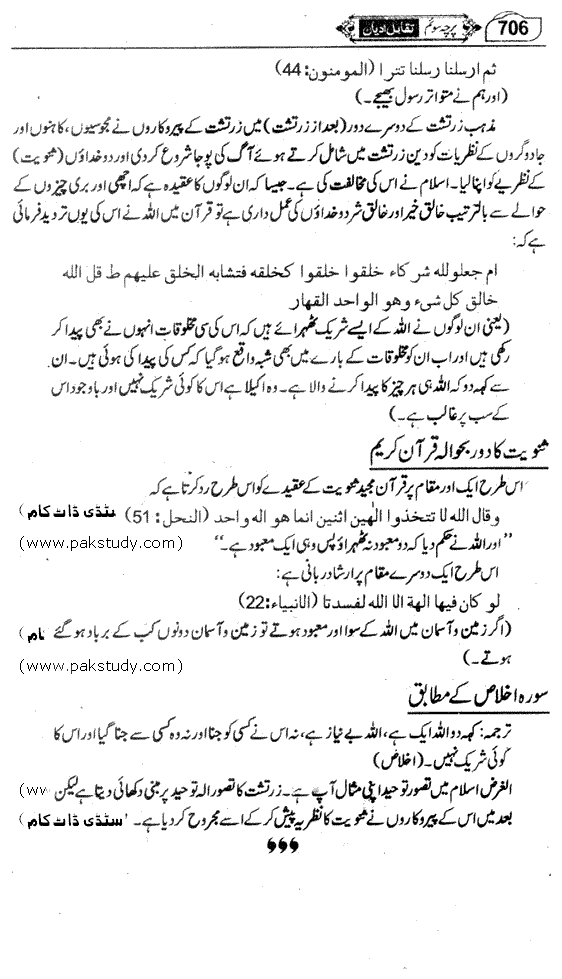 706 پرچہ سوئم تقابل ادیان
ثم ارسلنا رسلنا تترا (المومنون:44)
(اور ہم نے متواتر رسول بھیجے۔)
مذہب زرتشت کے دوسرے دور (بعد از زرتشت) میں زرتشت کے پیروکاروں نے مجوسیوں، کاہنوں اور
جادوگروں کے نظریات کو دین زرتشت میں شامل کرتے ہوئے آگ کی پوجا شروع کردی اور دو خداؤں (ثنویت)
کے نظریے کو اپنالیا۔ اسلام نے اس کی مخالفت کی ہے۔ جیسا کہ ان لوگوں کا عقیدہ ہے کہ اچھی اور بری چیزوں کے
حوالے سے بالترتیب خالق خیر اور خالق شر دو خداؤں کی عمل داری ہے تو قرآن میں اللہ نے اس کی یوں تردید فرمائی
ہے کہ:
ام جعلولله شرکاء خلقوا خلقوا کخلقه فتشابه الخلق علیهم ط قل الله
خالق کل شیء وهو الواحد القهار
(یعنی ان لوگوں نے اللہ کے ایسے شریک ٹھہرائے ہیں کہ اس کی سی مخلوقات انہوں نے بھی پیدا کر
رکھی ہیں اور اب ان کو مخلوقات کے بارے میں بھی شبہ واقع ہوگیا کہ کس کی پیدا کی ہوئی ہیں۔ ان
سے کہہ دو کہ اللہ ہی ہر چیز کا پیدا کرنے والا ہے۔ وہ اکیلا ہے اس کا کوئی شریک نہیں اور باوجود اس
کے سب پر غالب ہے۔)
ثنویت کا دور بحوالہ قرآن کریم
اس طرح ایک اور مقام پر قرآن مجید ثنویت کے عقیدے کو اس طرح رد کرتا ہے کہ
وقال الله لا تتخذوا الٰهین اثنین انما هو اله واحد (النحل:51) سٹڈی ڈاٹ کام )
"اور اللہ نے حکم دیا کہ دو معبود نہ ٹھہراؤ بس وہی ایک معبود ہے۔" (www.pakstudy.com)
اس طرح ایک دوسرے مقام پر ارشاد ربانی ہے:
لو کان فیها الهة الا الله لفسدتا (الانبیاء:22)
(اگر زمین و آسمان میں اللہ کے سوا اور معبود ہوتے تو زمین و آسمان دونوں کب کے برباد ہوگئے ام )
ہوتے۔) (www.pakstudy.com)
سورہ اخلاص کے مطابق
ترجمہ: کہہ دو اللہ ایک ہے، اللہ بے نیاز ہے، نہ اس نے کسی کو جنا اور نہ وہ کسی سے جنا گیا اور اس کا
کوئی شریک نہیں۔ (اخلاص)
الغرض اسلام میں تصور توحید اپنی مثال آپ ہے۔ زرتشت کا تصور الہ توحید پر مبنی دکھائی دیتا ہے لیکن (wv
بعد میں اس کے پیروکاروں نے ثنویت کا نظریہ پیش کر کے اسے مجروح کردیا ہے۔ سٹڈی ڈاٹ کام )